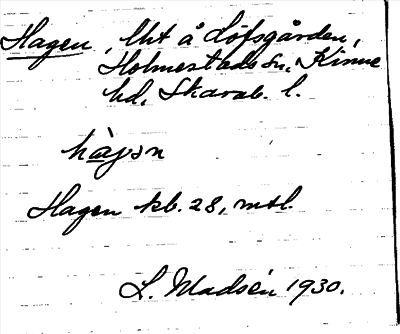 Hagen, lht å Löfsgården,
Holmestads sn, Kinne
hd, Skarab. l.
hàgən
Hagen kb. 28, mtl
L. Madsén 1930.